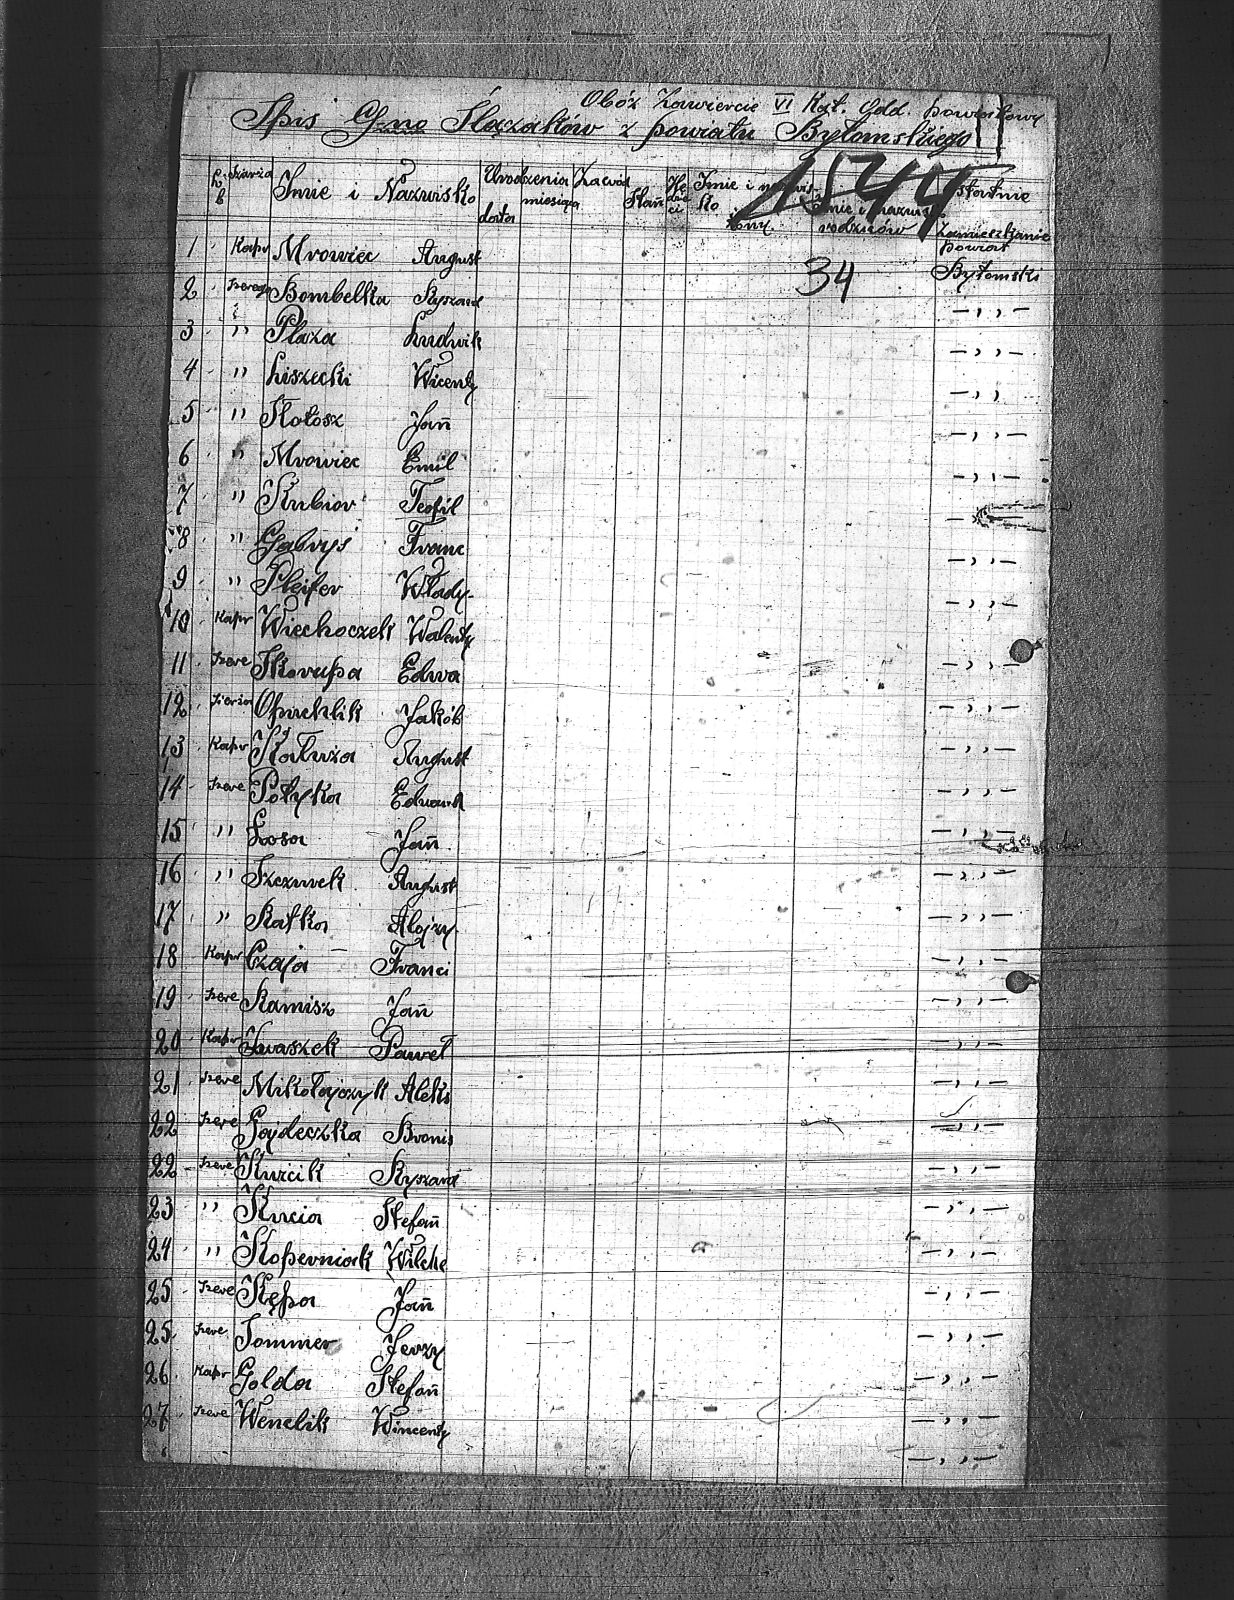 Obóz Zawiercie VI Kat. Odd. powiatowy
Spis Górno Ślązaków z powiatu Bytomskiego
1544
L.b Szarża Imie i Nazwisko Urodzenia data miesiąca Zawód Stan Ilu dzieci Imie i nazwisko żony Imie i nazwisko rodziców Ostatnie Zamieszkanie powiat
1 Kapr Mrowiec August 34 Bytomski
2 Szerego Bombelka Ryszard — ,, —
3 " Płaza Ludwik — ,, —
4 " Liszecki Wicenty — ,,
5 " Kołosz Jan — ,, —
6 " Mrowiec Emil — ,, —
7 " Kubior Teofil
8 " Gabryś Franc — ,, —
9 " Pleifer Włady. — ,, —
10 Kapr Wiechoczek Walenty
11 Szere Skorupa Edwa — ,, —
12 Sierża Opuchlik Jakób — ,, —
13 Kapr Kałuża August — ,, —
14 Szere Połyka Edward — ,, —
15 " Łosa Jan — ,, —
16 " Szczurek August — ,, —
17 " Kałka Alojzy — ,, —
18 Kapr Czaja Franci — ,, —
19 Szere Kamisz Jan — ,, —
20 Kapr Iwaszek Paweł — ,, —
21 Szere Mikołajczyk Aleks — ,, —
22 Szere Gajdeczka Bronis — ,, —
22 Szere Kurcik Ryszard — ,, —
23 " Kucia Stefan — ,, —
24 " Koperniak Wilche — ,, —
25 Szere Kępa Jan — ,, —
25 Szere Sommer Jerzy — ,, —
26 Kapr Golda Stefan
27 Szere Wenclik Wincenty — ,, —
— ,, —